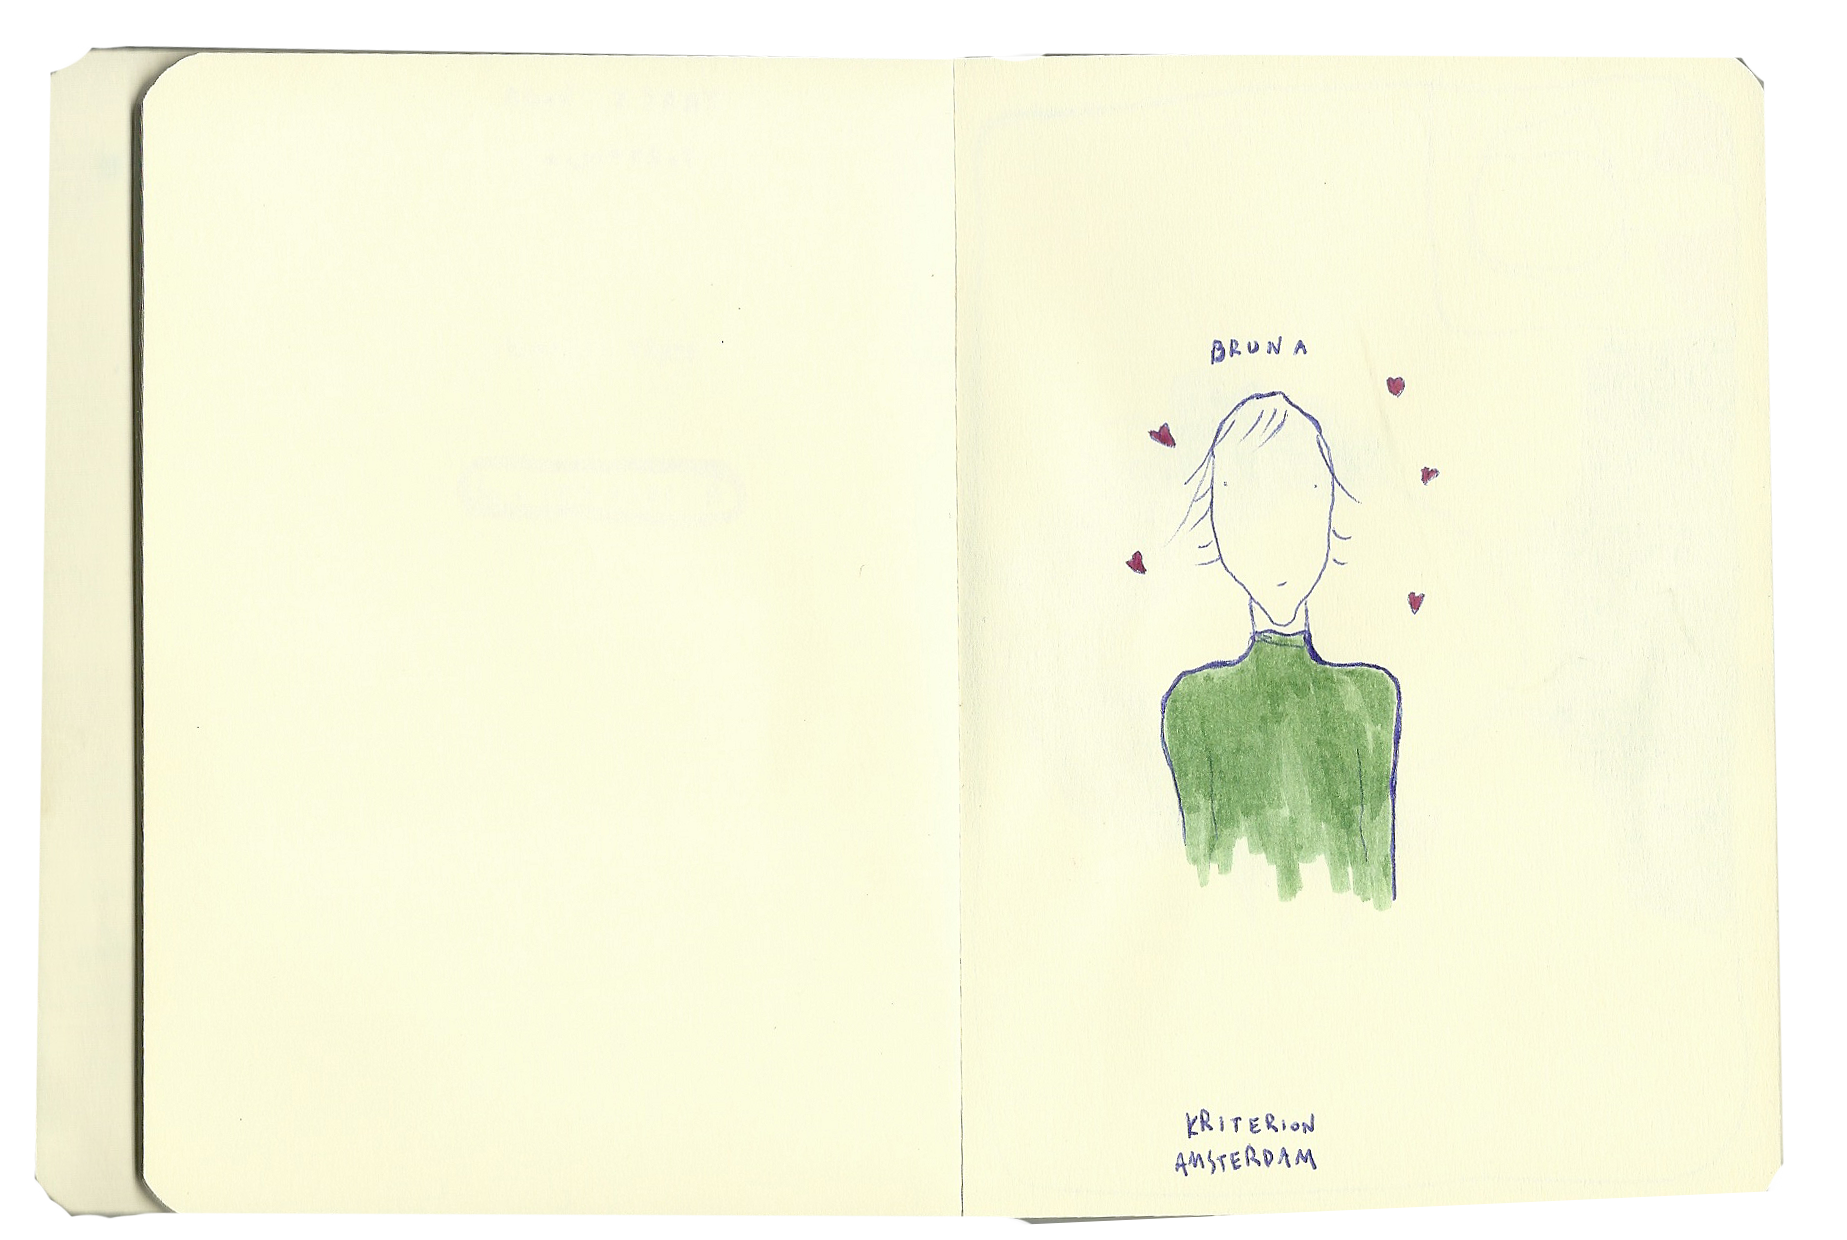 BRUNA
KRITERION
AMSTERDAM